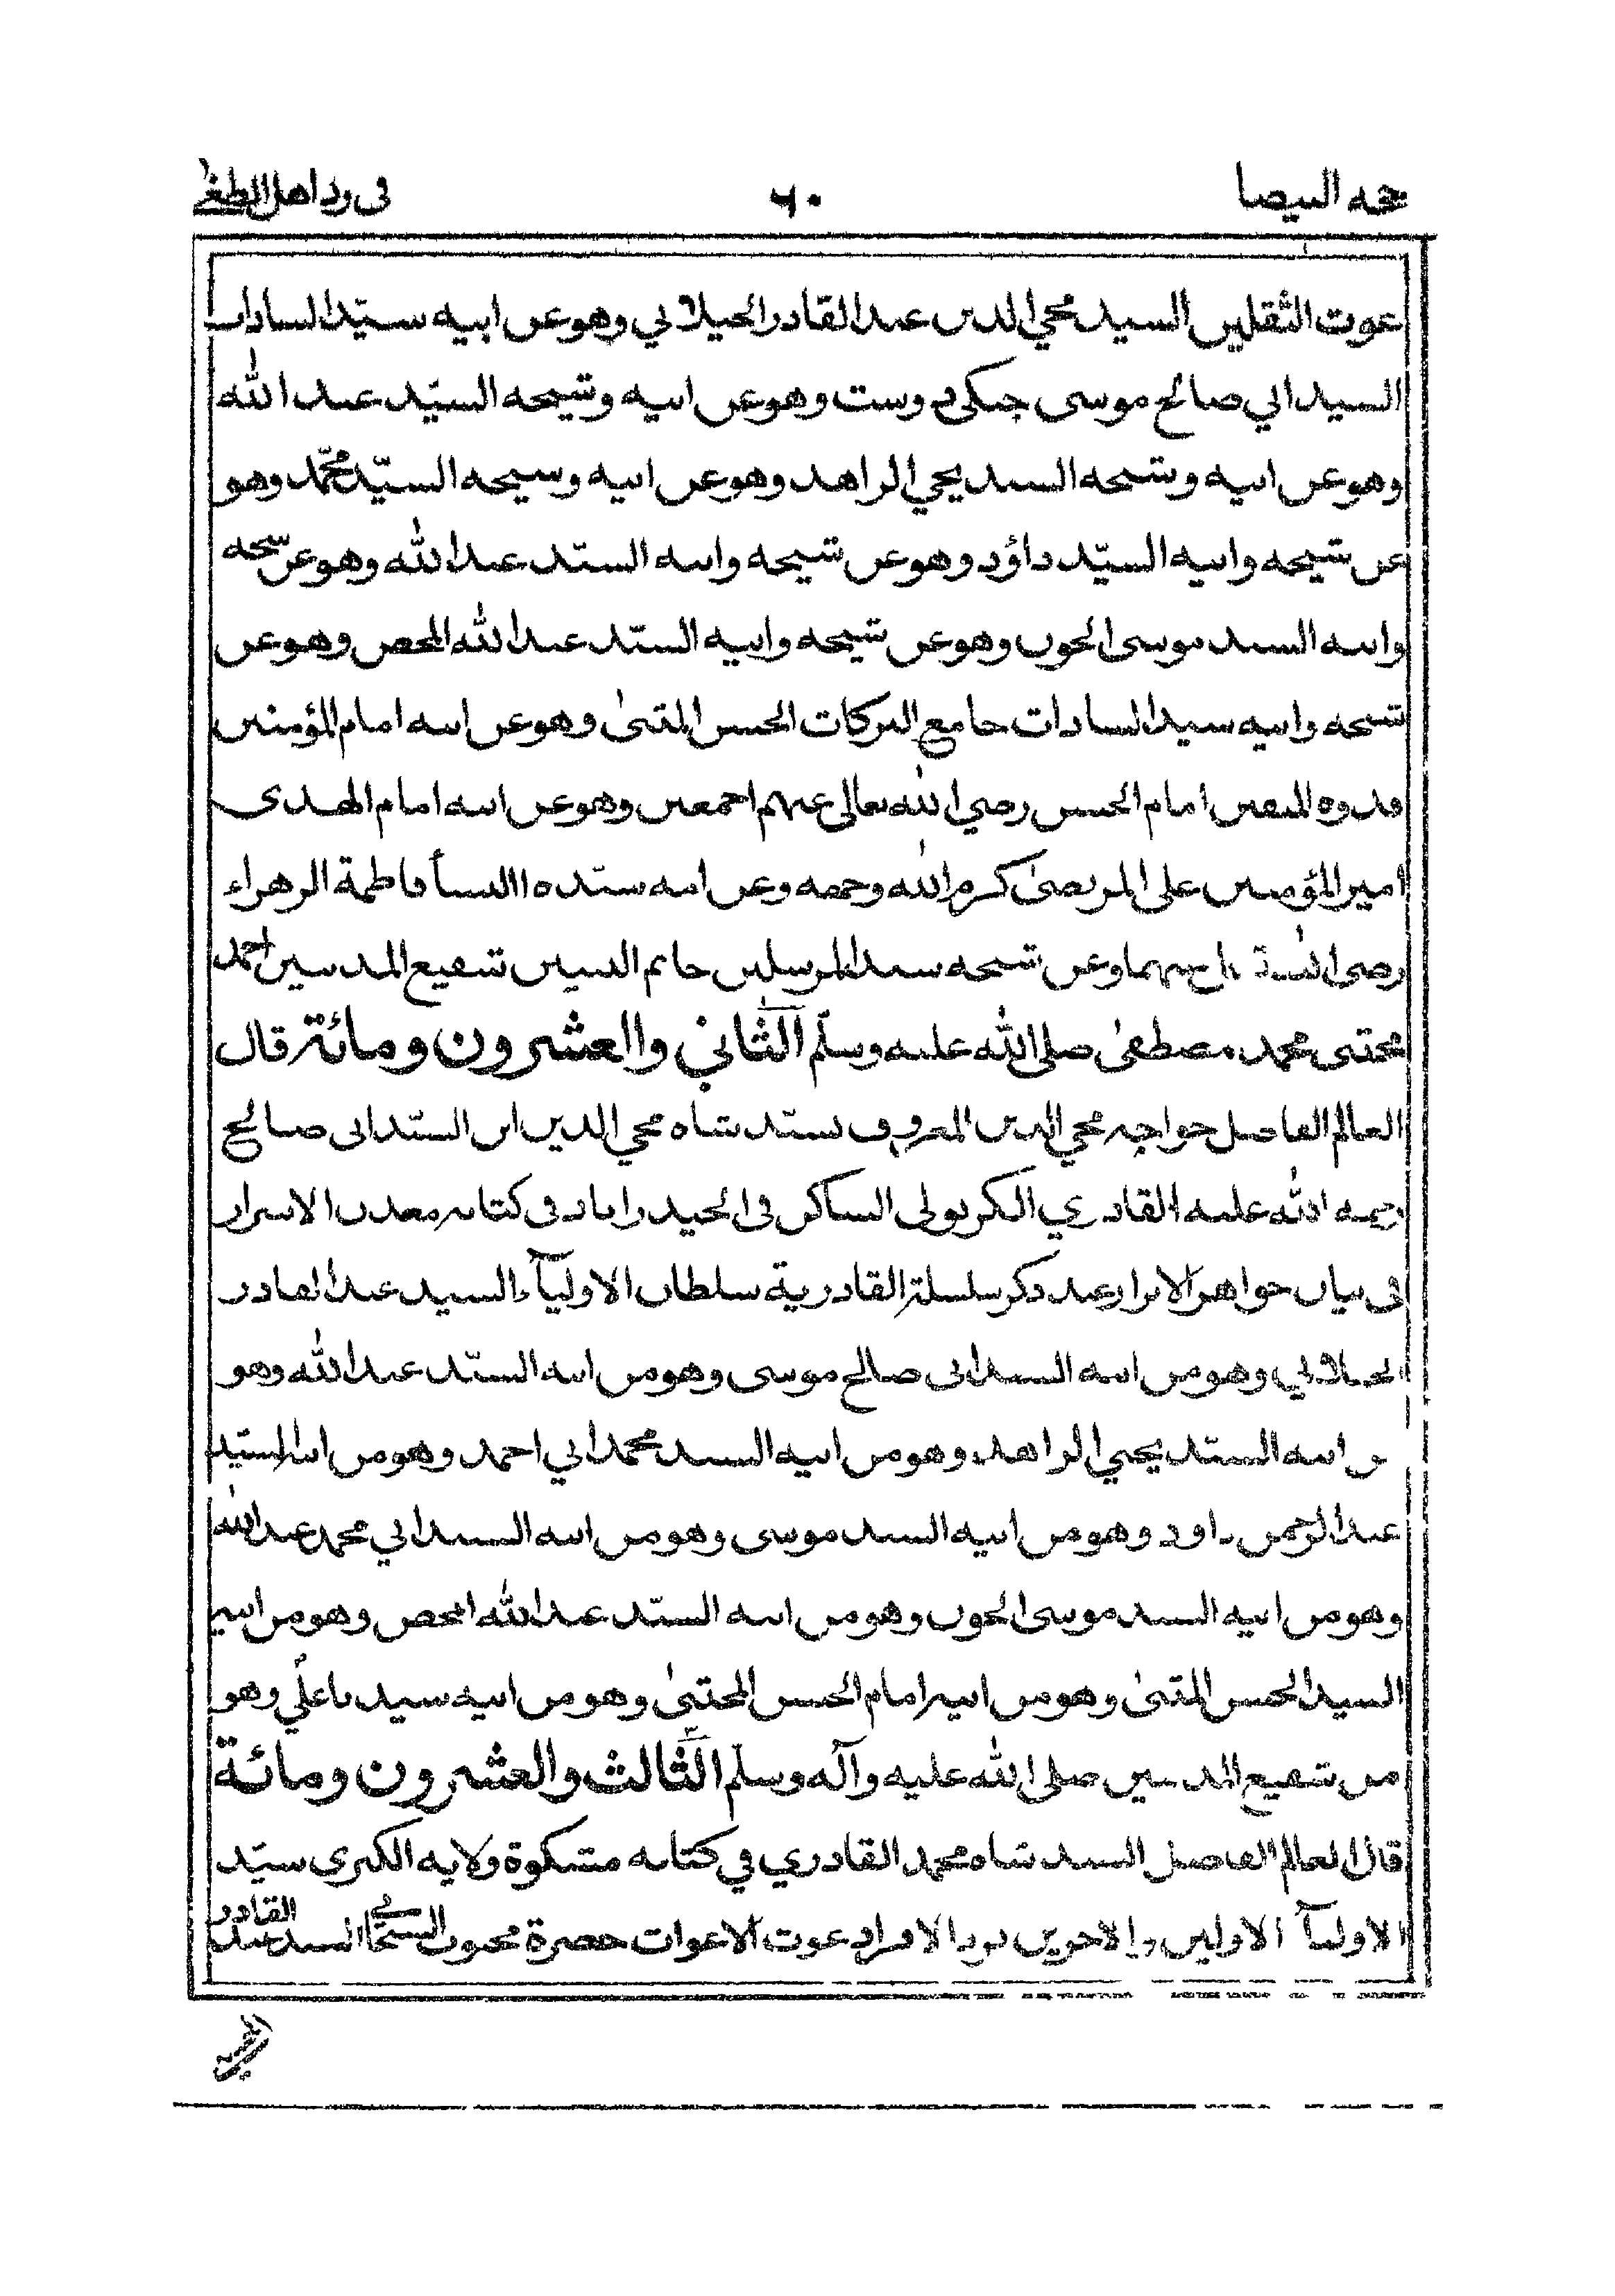 حجة البيضا ٦٠ فى رد اهل الطغى
غوث الثقلين السيد محي الدين عبد القادر الجيلاني وهو عن ابيه سيّد السادات
السيد ابي صالح موسى جنكي دوست وهو عن ابيه وشيخه السيّد عبد الله
وهو عن ابيه وشيخه السيد يحيي الزاهد وهو عن ابيه وشيخه السيّد محمّد وهو
عن شيخه وابيه السيّد داؤد وهو عن شيخه وابيه السيّد عبد الله وهو عن شيخه
وابيه السيد موسى الجون وهو عن شيخه وابيه السيّد عبد الله المحض وهو عن
شيخه وابيه سيد السادات جامع البركات الحسن المثنىٰ وهو عن ابيه امام المؤمنين
قدوة المتقين امام الحسن رضي الله تعالى عنهم اجمعين وهو عن ابيه امام الهدى
امير المؤمنين على المرتضىٰ كرم الله وجهه وعن امه سيّدة االنسأ فاطمة الزهراء
رضى الله عنهما وعن شيخه سيد المرسلين خاتم النبيين شفيع المذنبين احمد
مجتبى محمد مصطفىٰ صلى الله عليه وسلّم الثّاني واالعشرون ومائة قال
العالم الفاضل خواجه محي الدين المعروف بسيّد شاه محي الدين ابن السيّد ابى صالح
رحمة الله عليه القادري الكرنولى الساكن فى الحيدراباد فى كتابه معدن الاسرار
فى بيان جواهر الابرار عند ذكر سلسلة القادرية سلطان الاوليآء السيد عبد القادر
الجيلاني وهو من ابيه السيد ابى صالح موسى وهو من ابيه السيّد عبد الله وهو
من ابيه السيّد يحيي الزاهد وهو من ابيه السيد محمد ابي احمد وهو من ابيه السيّد
عبد الرحمن داود وهو من ابيه السيد موسى وهو من ابيه السيد ابي محمد عبد الله
وهو من ابيه السيد موسى الجون وهو من ابيه السيّد عبد الله المحض وهو من ابيه
السيد الحسن المثنىٰ وهو من ابيه امام الحسن المجتبىٰ وهو من ابيه سيدنا علي وهو
من شفيع المذنبين صلى الله عليه وآله وسلّم الثّالث والعشرون ومائة
قال العالم الفاضل السيد شاه محمد القادري في كتابه مشكوة ولاية الكبرى سيّد
الاوليآ الاولين والاخرين فرد الافراد غوث الاغواث حضرة محبوب السبحاني السيد عبد القادر